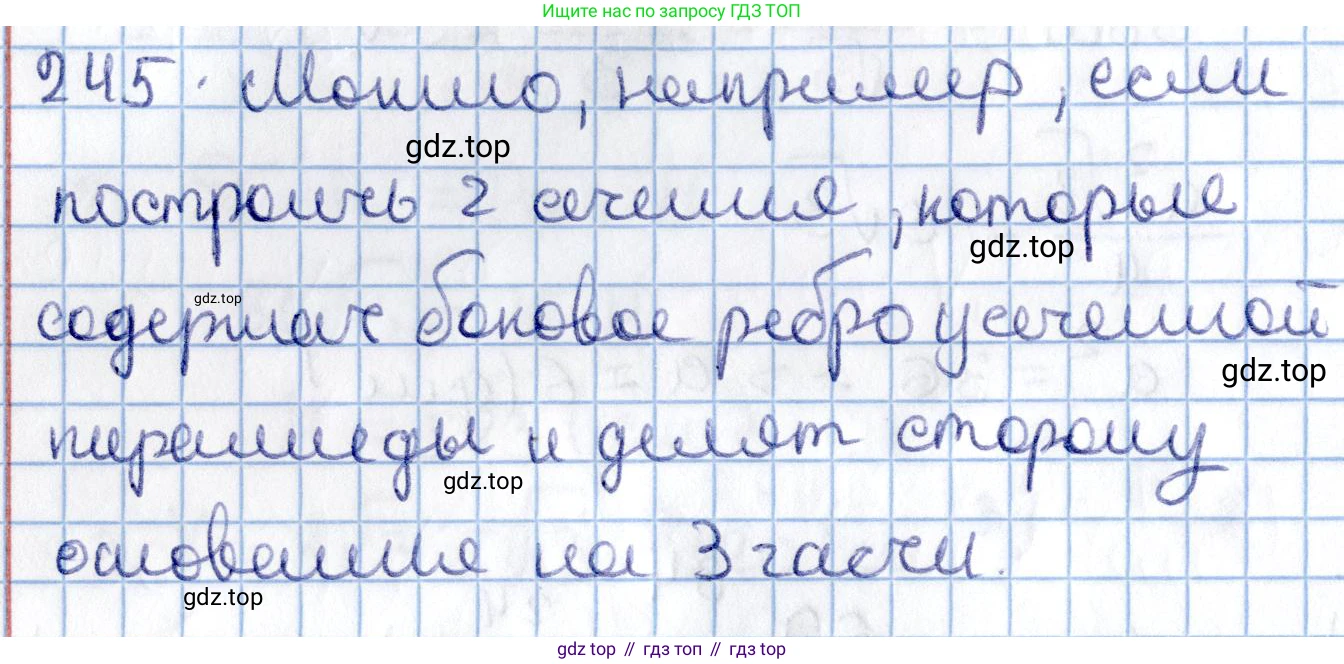 Ищите нас по запросу ГДЗ ТОП
245. Можно, например, если
gdz.top
построить 2 сечения, которые
gdz.top
gdz.top
содержат боковое ребро усеченной
gdz.top
пирамиды и делят сторону
gdz.top
основания на 3 части.
gdz.top
gdz top // гдз топ // гдз top